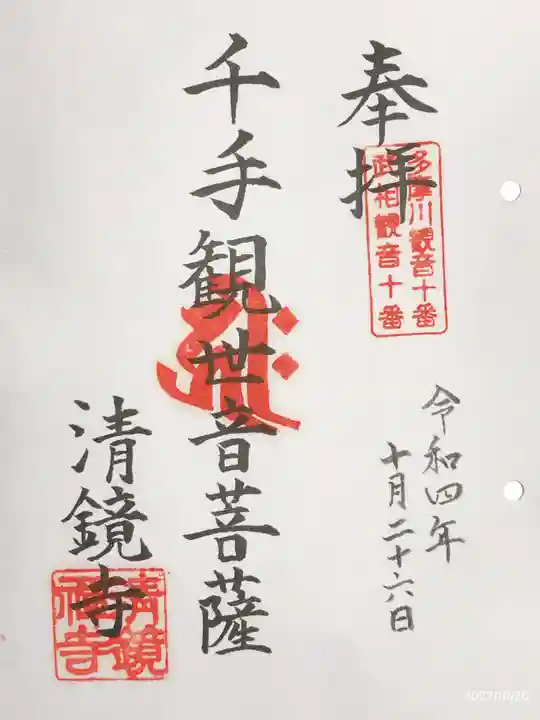 奉拝
多摩川観音十番
武相観音十番
令和四年
十月二十六日
千手観世音菩薩
清鏡寺